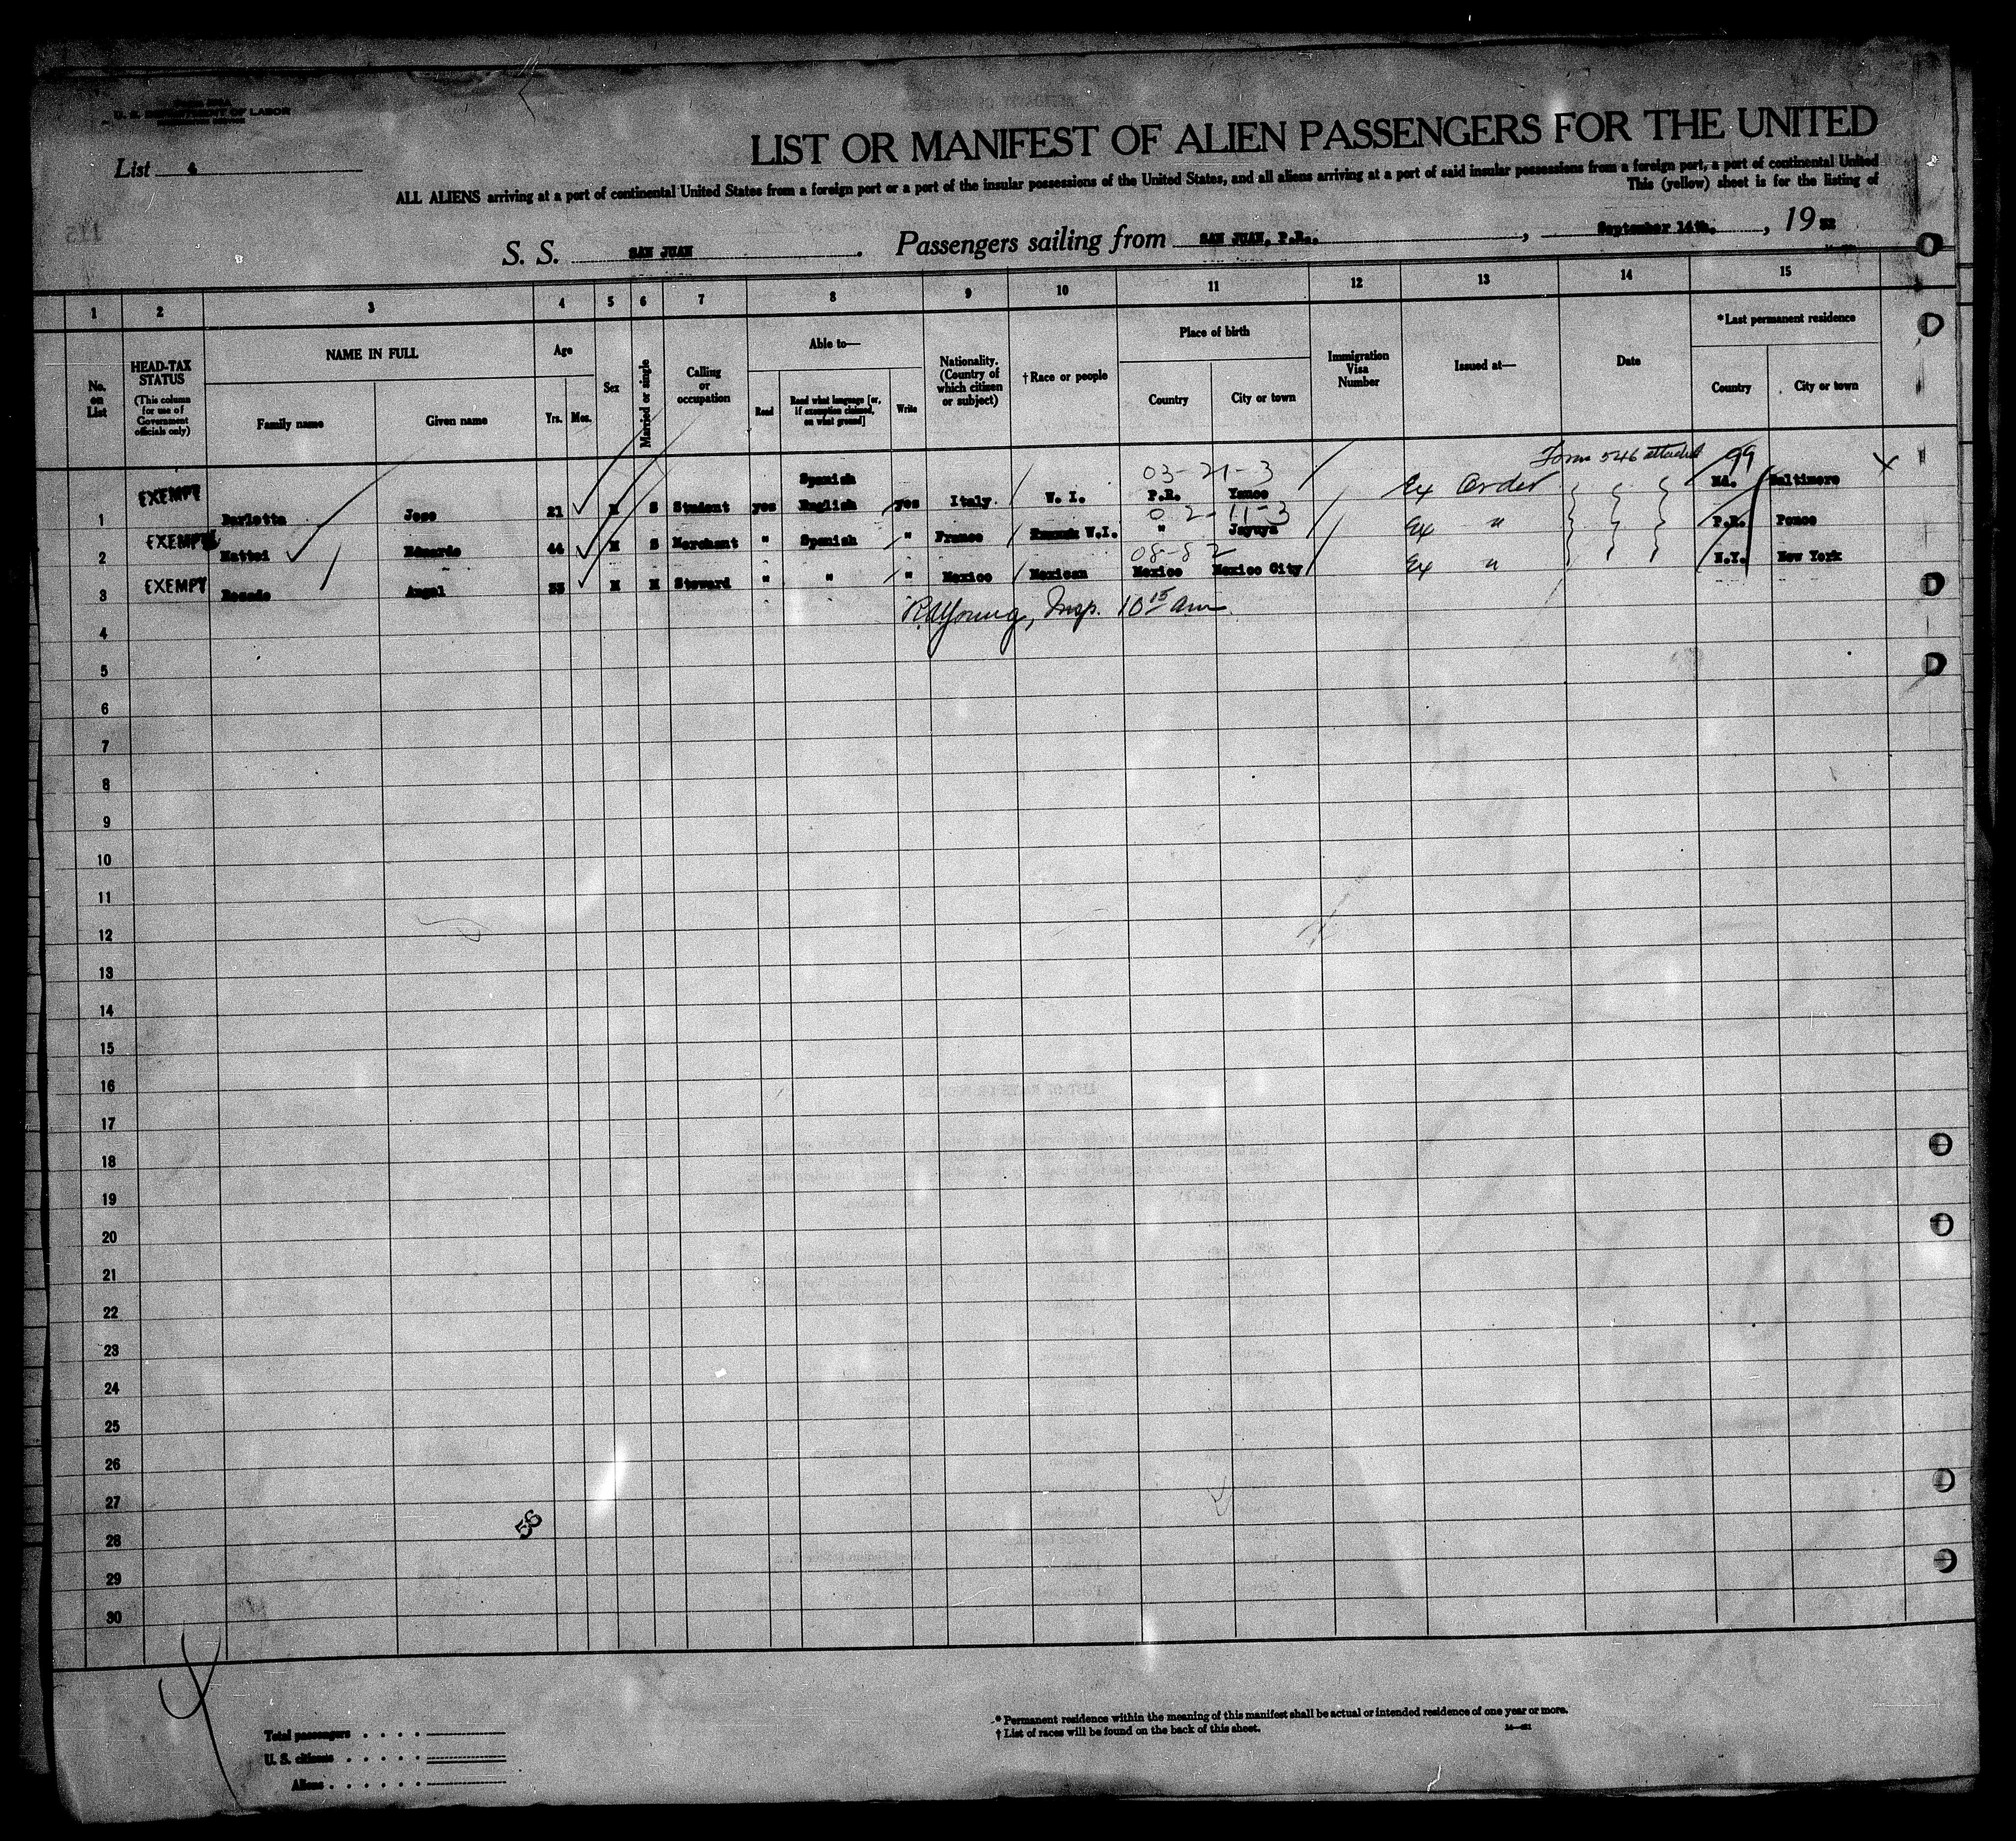 U. S. DEPARTMENT OF LABOR
List 4
LIST OR MANIFEST OF ALIEN PASSENGERS FOR THE UNITED
ALL ALIENS arriving at a port of continental United States from a foreign port or a port of the insular possessions of the United States, and all aliens arriving at a port of said insular possessions from a foreign port, a port of continental United
This (yellow) sheet is for the listing of
115
S. S. SAN JUAN. Passengers sailing from SAN JUAN, P.R., September 14th., 19
1 2 3 4 5 6 7 8 9 10 11 12 13 14 15
No. on List
HEAD-TAX STATUS (This column for use of Government officials only)
NAME IN FULL
Family name Given name
Age
Yrs. Mos.
Sex
Married or single
Calling or occupation
Able to—
Read Read what language [or, if exemption claimed, on what ground] Write
Nationality. (Country of which citizen or subject)
† Race or people
Place of birth
Country City or town
Immigration Visa Number
Issued at—
Date
*Last permanent residence
Country City or town
Form 546 attached 99
03-21-3
Spanish
1 EXEMPT Barletta Jose 21 M S Student yes English yes Italy W. I. P.R. Yauco Ex Order Md. Baltimore X
02-11-3
2 EXEMPT Mattei Eduardo 44 M S Merchant " Spanish " France W.I. " Jayuya Ex " P.R. Ponce
08-82
3 EXEMPT Rosado Angel 33 M M Steward " " " Mexico Mexican Mexico Mexico City Ex " N.Y. New York
RAYoung, Insp. 10 15 am
4
5
6
7
8
9
10
11
12
13
14
15
16
17
18
19
20
21
22
23
24
25
26
27
28
29
30
56
Total passengers
U. S. citizens
Aliens
* Permanent residence within the meaning of this manifest shall be actual or intended residence of one year or more.
† List of races will be found on the back of this sheet.